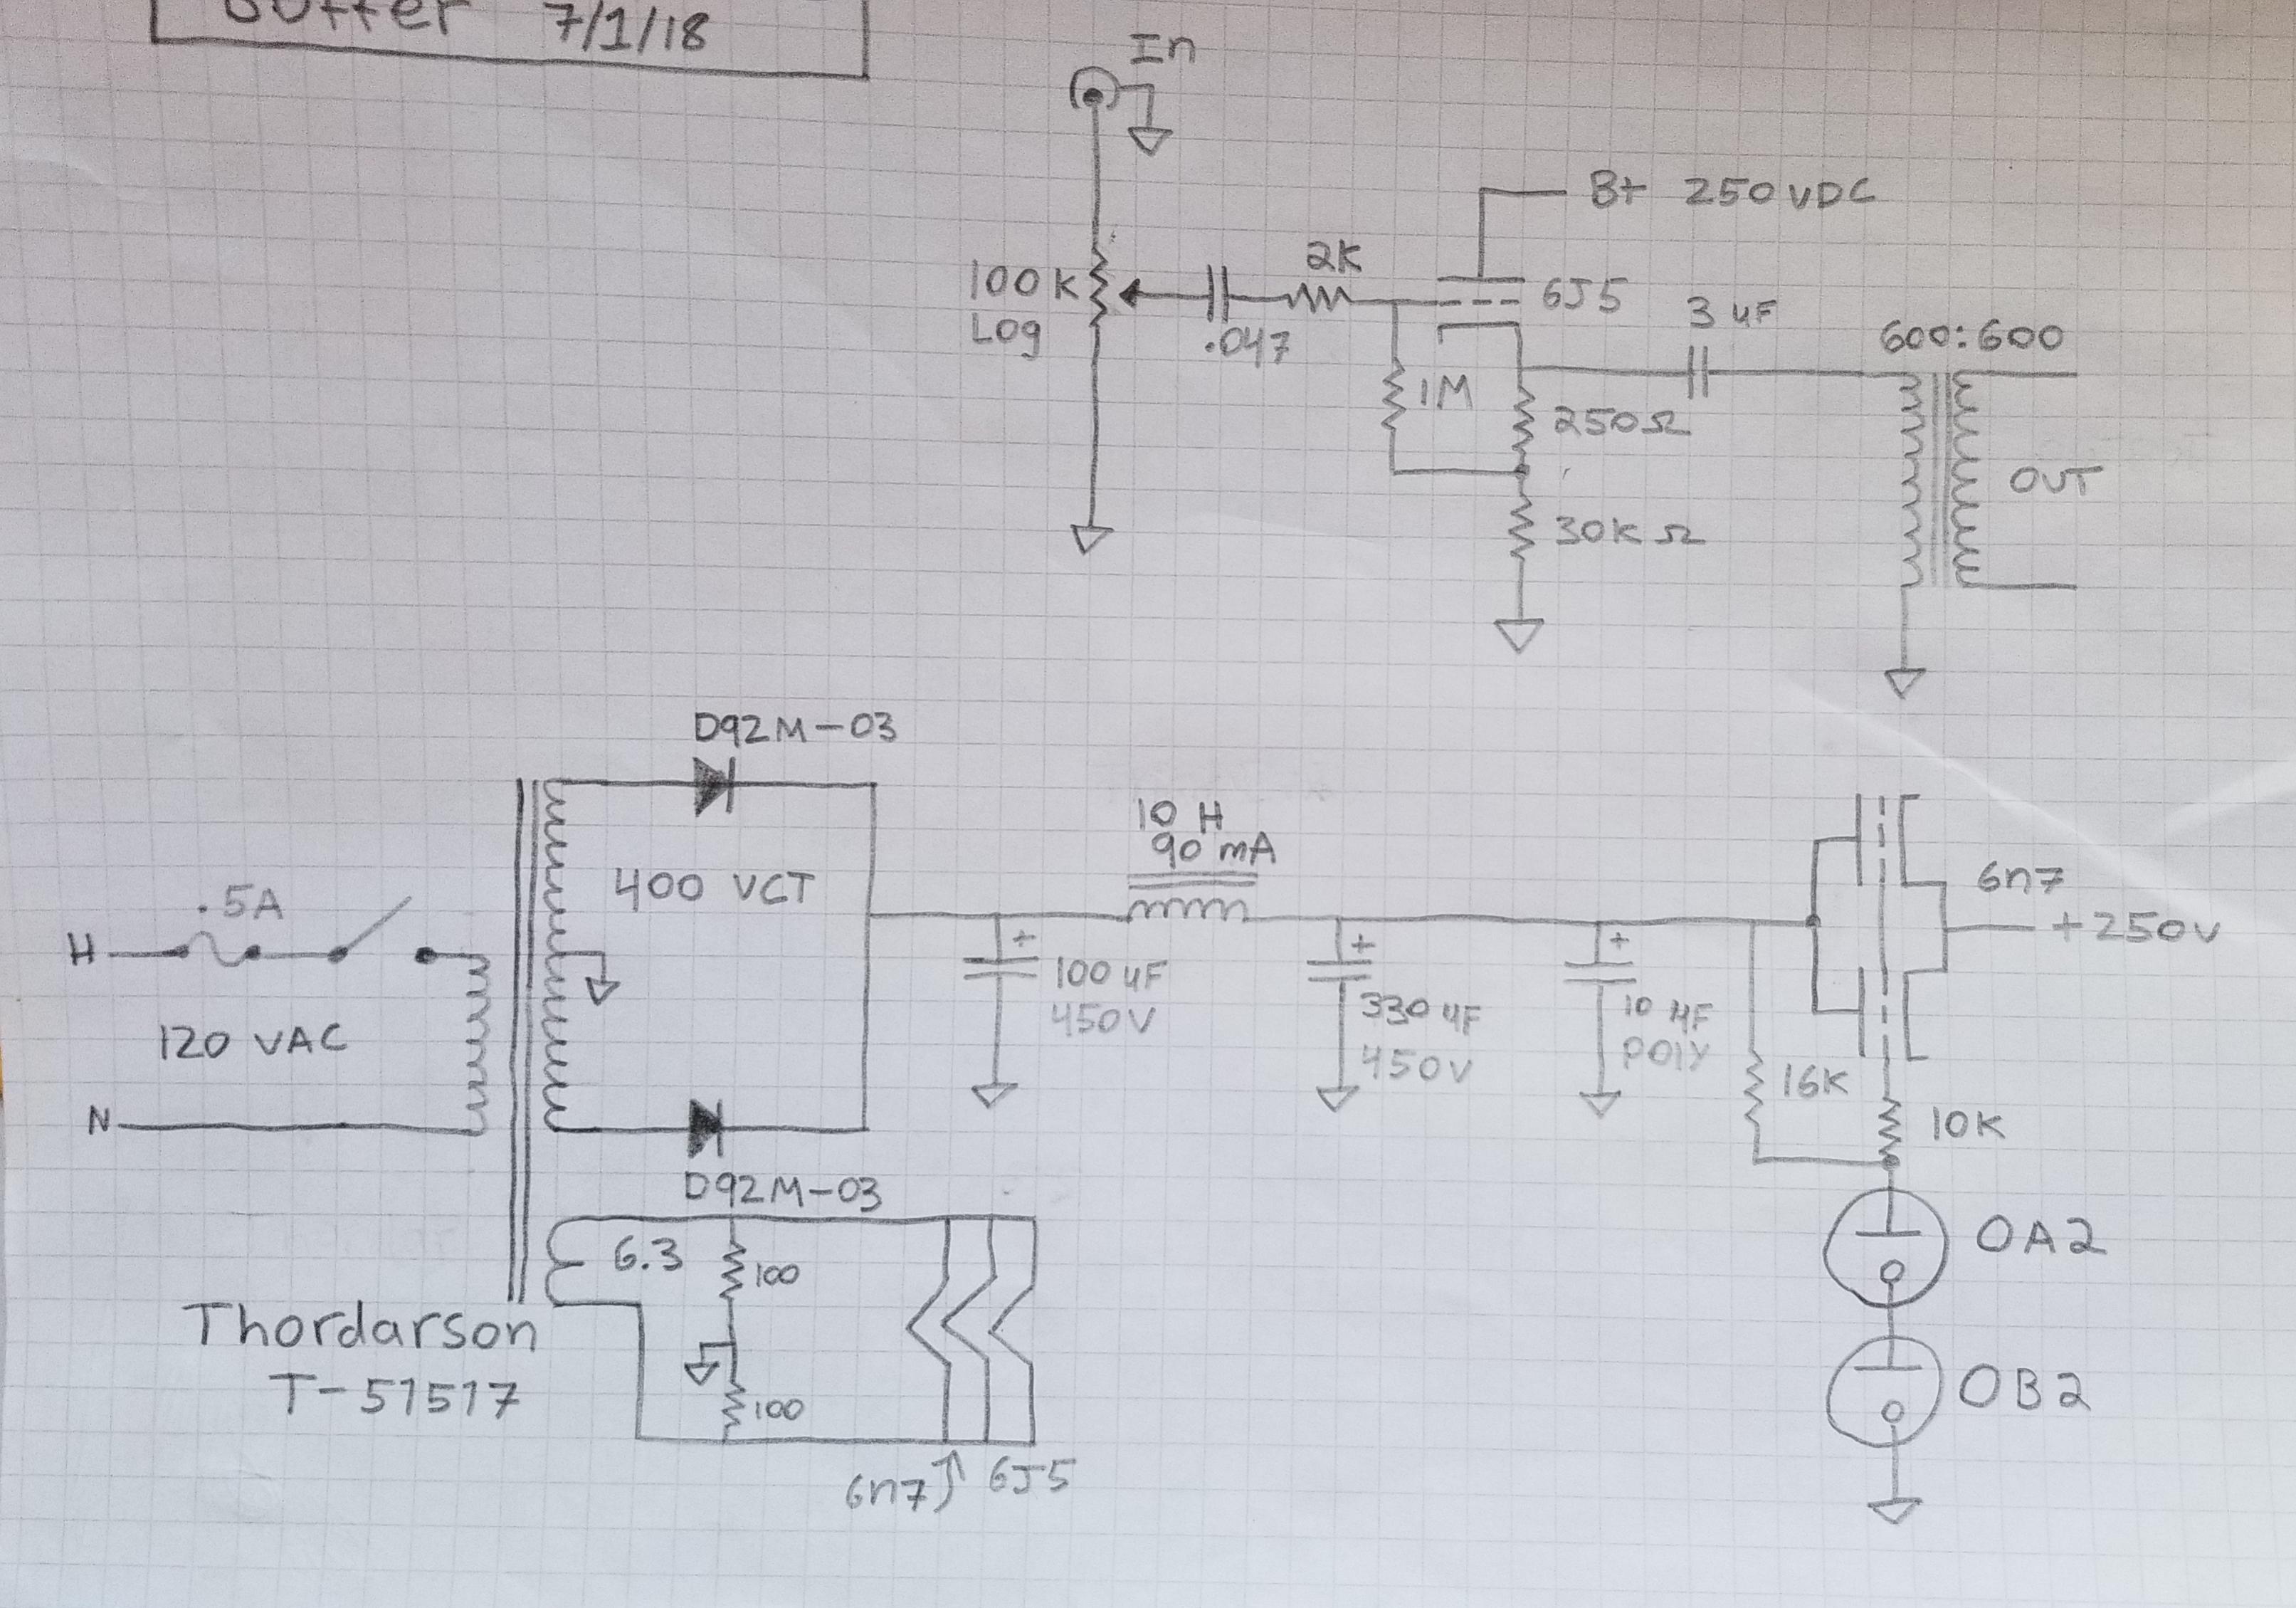 Buffer 7/1/18
In
B+ 250 VDC
2K
100K
Log
.047
6J5
3 uF
600:600
1M
250Ω
OUT
30K Ω
D92M-03
10 H
90 mA
400 VCT
6n7
+250v
.5A
H
100 uF
450V
330 uF
450V
10 uF
POLY
120 VAC
16K
10K
N
D92M-03
6.3
100
OA2
Thordarson
T-51517
100
OB2
6n7
6J5